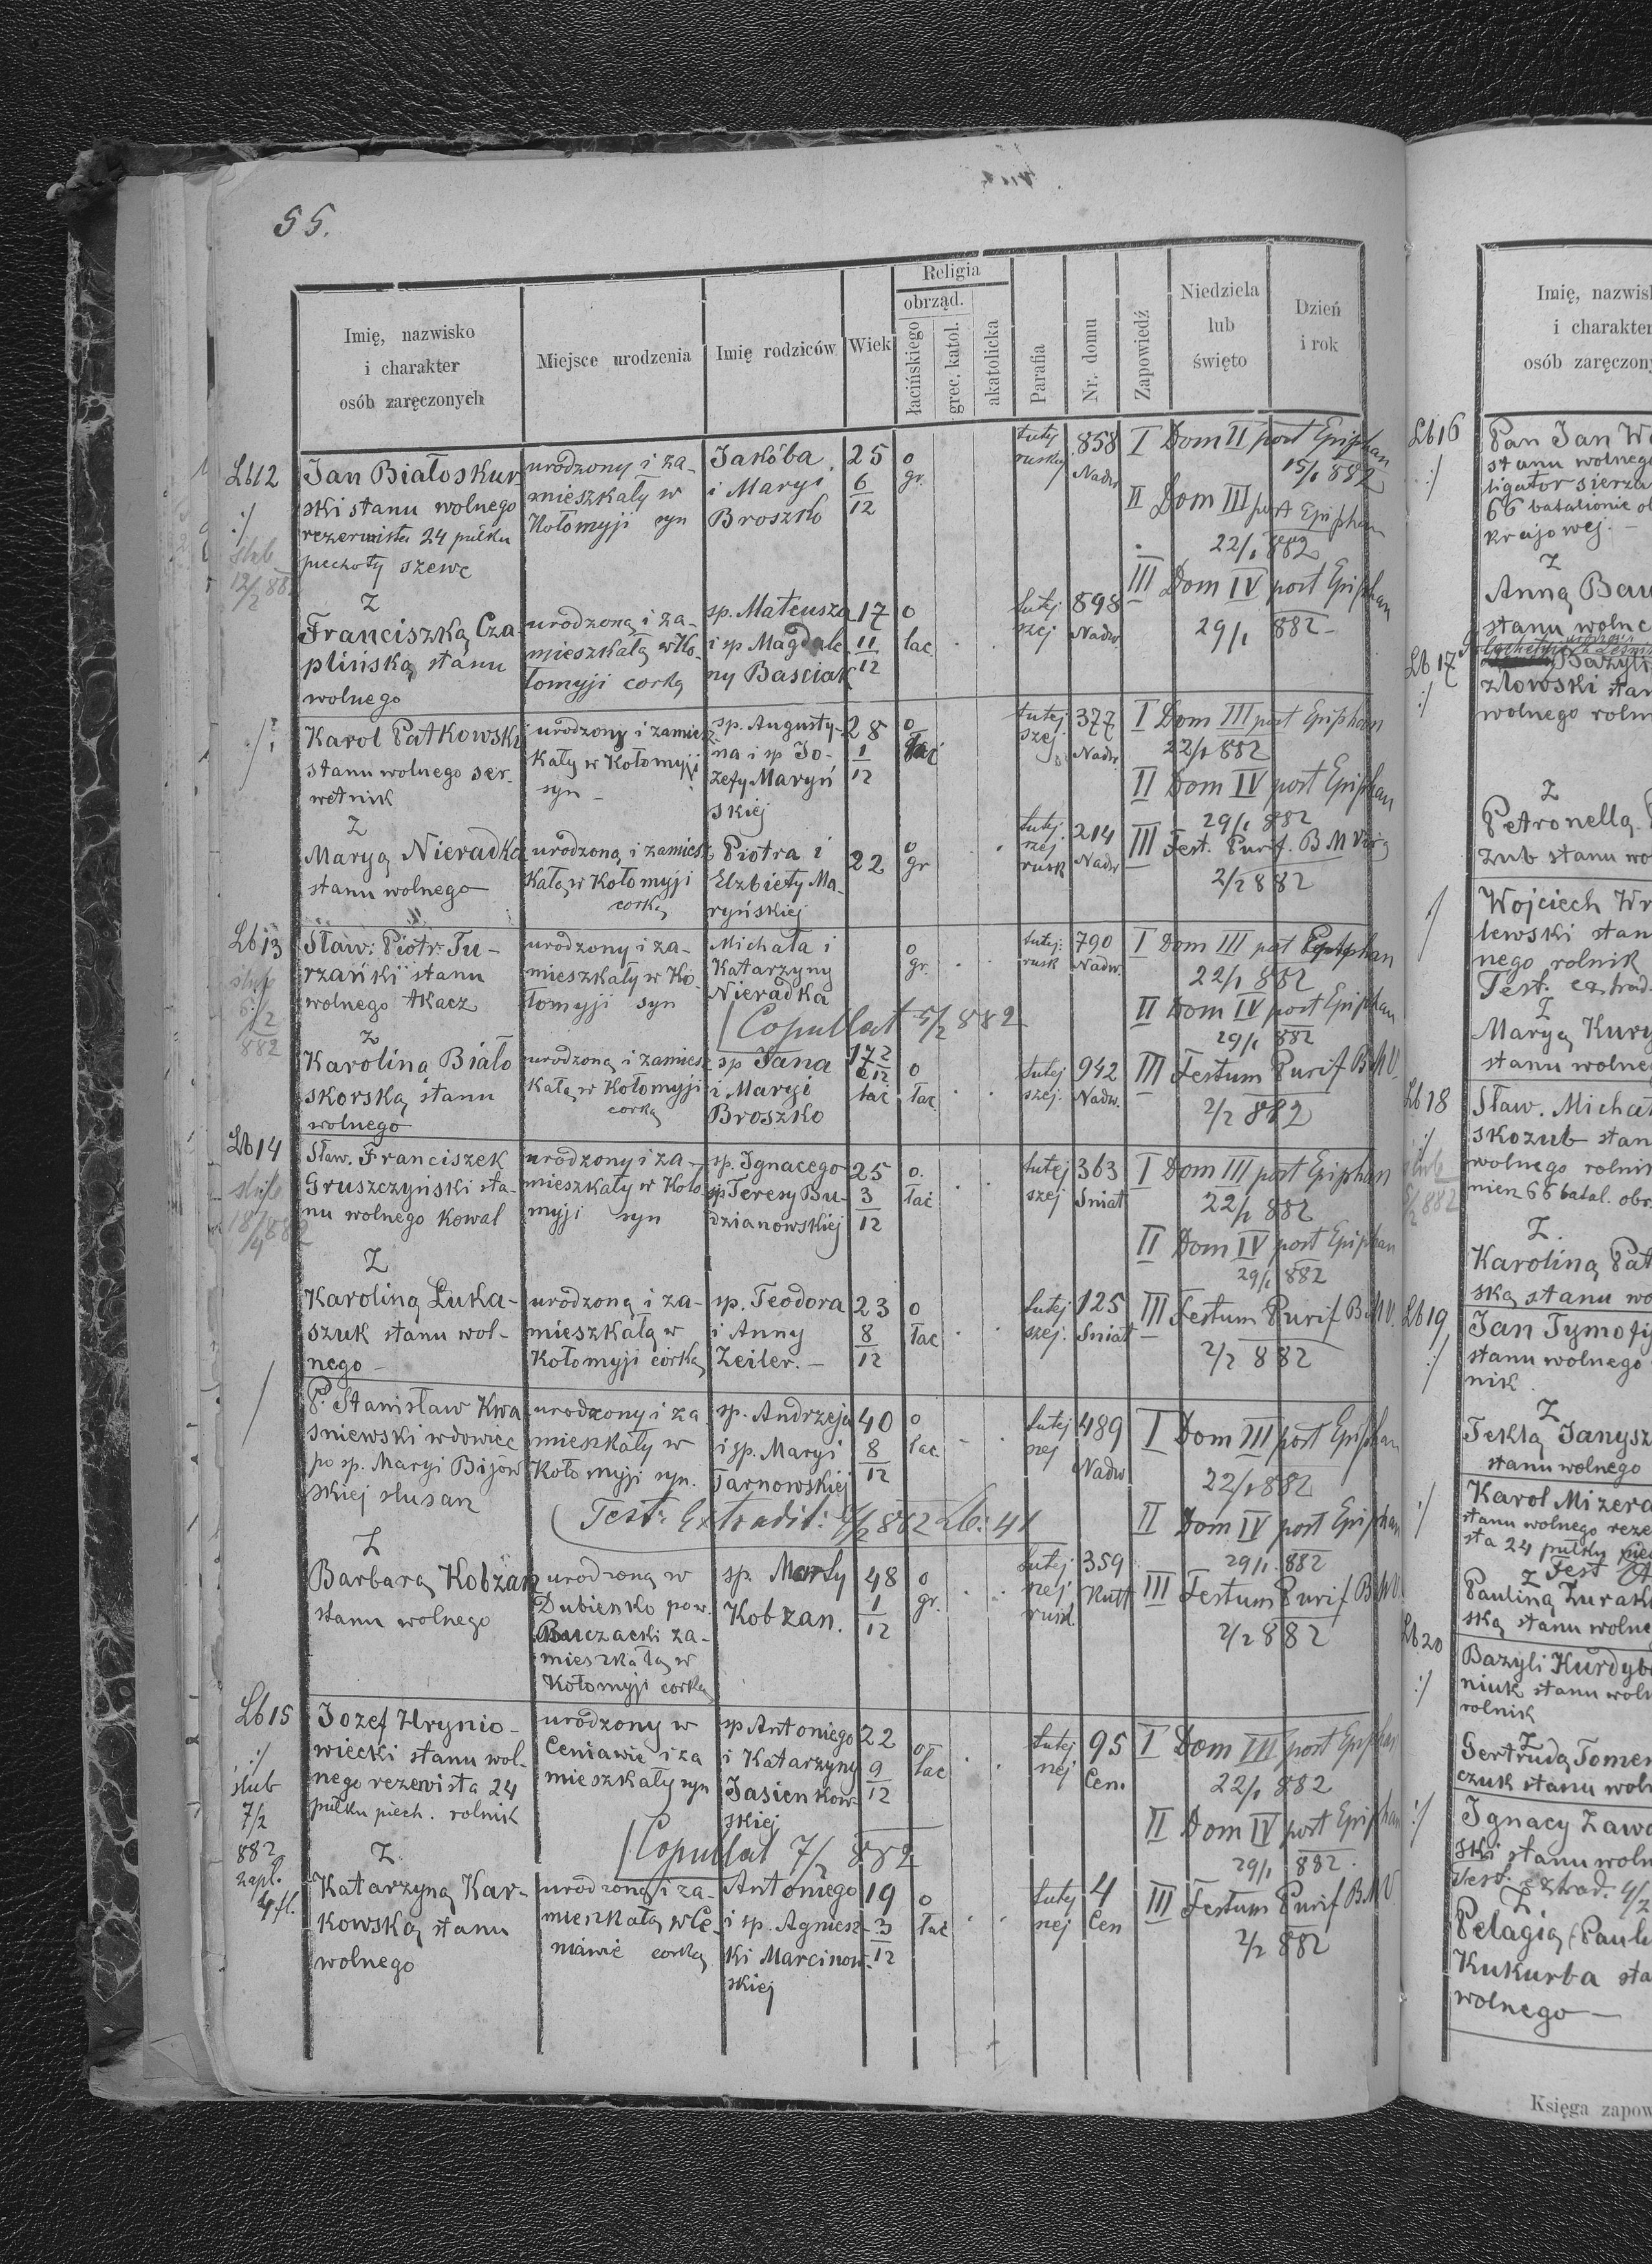 55.
Imię, nazwisko
i charakter
osób zaręczonych
Miejsce urodzenia
Imię rodziców
Wiek
Religia
obrząd.
łacińskiego
grec. katol.
akatolicka
Parafia
Nr. domu
Zapowiedź
Niedziela
lub
święto
Dzień
i rok
Lb12
Jan Białoskur-
ski stanu wolnego
rezerwista 24 pułku
piechoty szewc
urodzony i za-
mieszkały w
Kołomyji syn
Jakóba
i Maryi
Broszko
25
6
12
o
gr.
tutej
ruskiej
858
Nadw
I Dom II post Epiphan
15/1 882
II Dom III post Epiphan
22/1 882
III Dom IV post Epiphan
29/1 882
ślub
12/2 88
Z
Franciszką Cza-
plińską stanu
wolnego
urodzoną i za-
mieszkałą w Ko-
łomyji corką
sp. Mateusza
i sp Magdale-
ny Basciak
17
11
12
o
łac
tutej
szej
898
Nadw
Karol Patkowski
stanu wolnego ser-
wetnik
urodzony i zamiesz
kały w Kołomyji
syn
sp. Augusty-
na i sp Jo-
zefy Maryń
skiej
28
1
12
o
łać
tutej
szej
377
Nadw.
I Dom III post Epiphan
22/1 882
II Dom IV post Epiphan
29/1 882
III Fest. Purif. B M Virg
2/2 882
Z
Maryą Nieradka
stanu wolnego
urodzoną i zamiesz
kałą w Kołomyji
corką
Piotra i
Elzbiety Ma-
ryńskiej
22
o
gr
tutej.
szej
rusk
214
Nadw
Lb13
ślub
5/2
882
Sław: Piotr Tu-
rzański stanu
wolnego tkacz
urodzony i za-
mieszkały w Ko-
łomyji syn
Michała i
Katarzyny
Nieradka
o
gr.
tutej:
rusk
790
Nadw.
I Dom III post Epiphan
22/1 882
II Dom IV post Epiphan
29/1 882
III Festum Purif B.M.V.
2/2 882
Copullat 5/2 882
Z
Karoliną Biało
skorską stanu
wolnego
urodzoną i zamiesz
kałą w Kołomyji
corką
sp Jana
i Maryi
Broszko
17
2
12
łać
o
łac
tutej
szej.
942
Nadw.
Lb14
ślub
18/4 882
Sław. Franciszek
Gruszczyński sta-
nu wolnego kowal
urodzony i za-
mieszkały w Koło-
myji syn
sp. Ignacego
sp Teresy Bu-
dzianowskiej
25
3
12
o.
łać
tutej
szej
363
Sniat
I Dom III post Epiphan
22/1 882
II Dom IV post Epiphan
29/1 882
III Festum Purif B.M.V.
2/2 882
Z
Karoliną Łuka-
szuk stanu wol-
nego
urodzoną i za-
mieszkałą w
Kołomyji córką
sp. Teodora
i Anny
Zeiler.
23
8
12
o
łac
tutej
szej.
125
Sniat
P. Stanisław Kwa
sniewski wdowiec
po sp. Maryi Bijow
skiej slusarz
urodzony i za
mieszkały w
Kołomyji syn.
sp. Andrzeja
i sp. Maryi
Tarnowskiej
40
8
12
o
łac
tutej
szej
489
Nadw
I Dom III post Epiphan
22/1 882
II Dom IV post Epiphan
29/1 882
III Festum Purif B.M.V.
2/2 882
Test. Extradit: 4/2 882 Lb: 41
Z
Barbarą Kobzan
stanu wolnego
urodzoną w
Dubienko pow.
Buczacki za-
mieszkałą w
Kołomyji corką
sp. Marty
Kobzan.
48
1
12
o
gr.
tutej
szej
rusk
359
Kutt
Lb15
slub
7/2
882
zapł.
4 fl.
Jozef Hrynio-
wiecki stanu wol-
nego rezewista 24
pułku piech. rolnik
urodzony w
Ceniawie i za
mieszkały syn
sp Antoniego
i Katarzyny
Jasienkow-
skiej
22
9
12
o
łac
tutej
szej
95
Cen.
I Dom III post Epiphan
22/1 882
II Dom IV post Epiphan
29/1 882.
III Festum Purif B.M.V
2/2 882
Copullat 7/2 882
Z
Katarzyną Kar-
kowską stanu
wolnego
urodzoną i za-
mieszkałą w Ce-
niawie corką
Antoniego
i sp. Agniesz-
ki Marcinow-
skiej
19
3
12
o
łac
tutej
szej
4
Cen
Imię, nazwisk
i charakter
osób zaręczony
Lb16
Pan Jan W
stanu wolnego
ligator sierża
66 batalionie ob
krajowej.
Z
Anną Bau
stanu wolne
Lb17
Bazyli
złowski stan
wolnego rolni
Z
Petronellą
zub stanu wo
Wojciech Wr
lewski stan
nego rolnik
Test. extrad.
Z
Maryą Kury
stanu wolne
Lb18
Sław. Michał
skozub stan
wolnego rolni
nier 66 batal. obr.
Z.
Karoliną Pat
ską stanu wo
Lb19
Jan Tymofij
stanu wolnego
nik
Z
Teklą Janysz
stanu wolnego
Karol Mizera
stanu wolnego reze
sta 24 pułku
Z Test
Pauliną Zurak
ską stanu wolne
Lb20
Bazyli Hurdyb
niuk stanu woln
rolnik
Z
Gertrudą Tomen
czuk stanu woln
Ignacy Zawa
ski stanu woln
Test. extrad. 4/2
Z
Pelagią (Paul
Kukurba sta
wolnego
Księga zapow